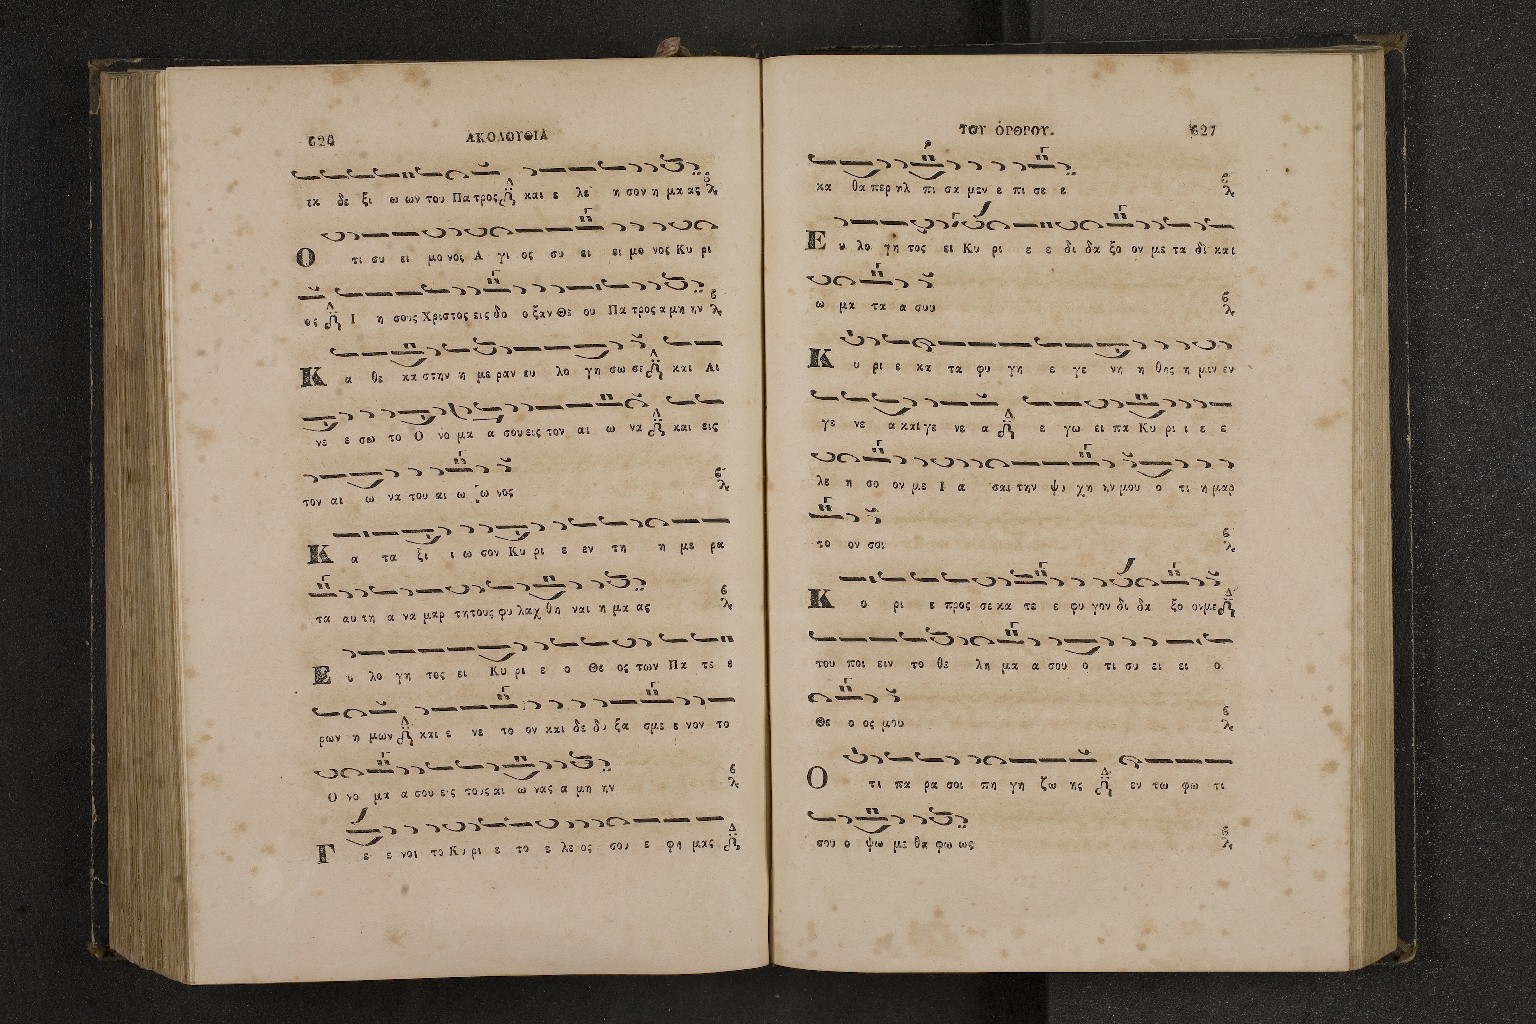 626 ΑΚΟΛΟΥΘΙΑ
εκ δε ξι ω ων του Πα τρος και ε λε η σον η μα ας
Ο τι συ ει μο νος Α γι ος συ ει ει μο νος Κυ ρι
ος Ι η σους Χριστος εις δο ο ξαν Θε ου Πα τρος α μη ην
Κ α θε κα στην η με ραν ευ λο γη σω σε και Αι
νε ε σω το Ο νο μα α σου εις τον αι ω να και εις
τον αι ω να του αι ω ω νος
Κ α τα ξι ι ω σον Κυ ρι ε εν τη η με ρα
τα αυ τη α να μαρ τη τους φυ λαχ θη ναι η μα ας
Ε υ λο γη τος ει Κυ ρι ε ο Θε ος των Πα τε ε
ρων η μων και ε νε το ον και δε δο ξα σμε ε νον το
Ο νο μα α σου εις τους αι ω νας α μη ην
Γ ε ε νοι το Κυ ρι ε το ε λε ος σου ε φη μας
ΤΟΥ ΟΡΘΡΟΥ. 627
κα θα περ ηλ πι σα μεν ε πι σε ε
Ε υ λο γη τος ει Κυ ρι ε ε δι δα ξο ον με τα δι και
ω μα τα α σου
Κ υ ρι ε κα τα φυ γη ε γε νη η θης η μιν εν
γε νε α και γε νε α ε γω ει πα Κυ ρι ι ε ε
λε η σο ον με Ι α σαι την ψυ χη ην μου ο τι η μαρ
το ον σοι
Κ υ ρι ε προς σε κα τε ε φυ γον δι δα ξο ον με
του ποι ειν το θε λη μα α σου ο τι συ ει ει ο
Θε ο ος μου
Ο τι πα ρα σοι πη γη ζω ης εν τω φω τι
σου ο ψω με θα φω ως